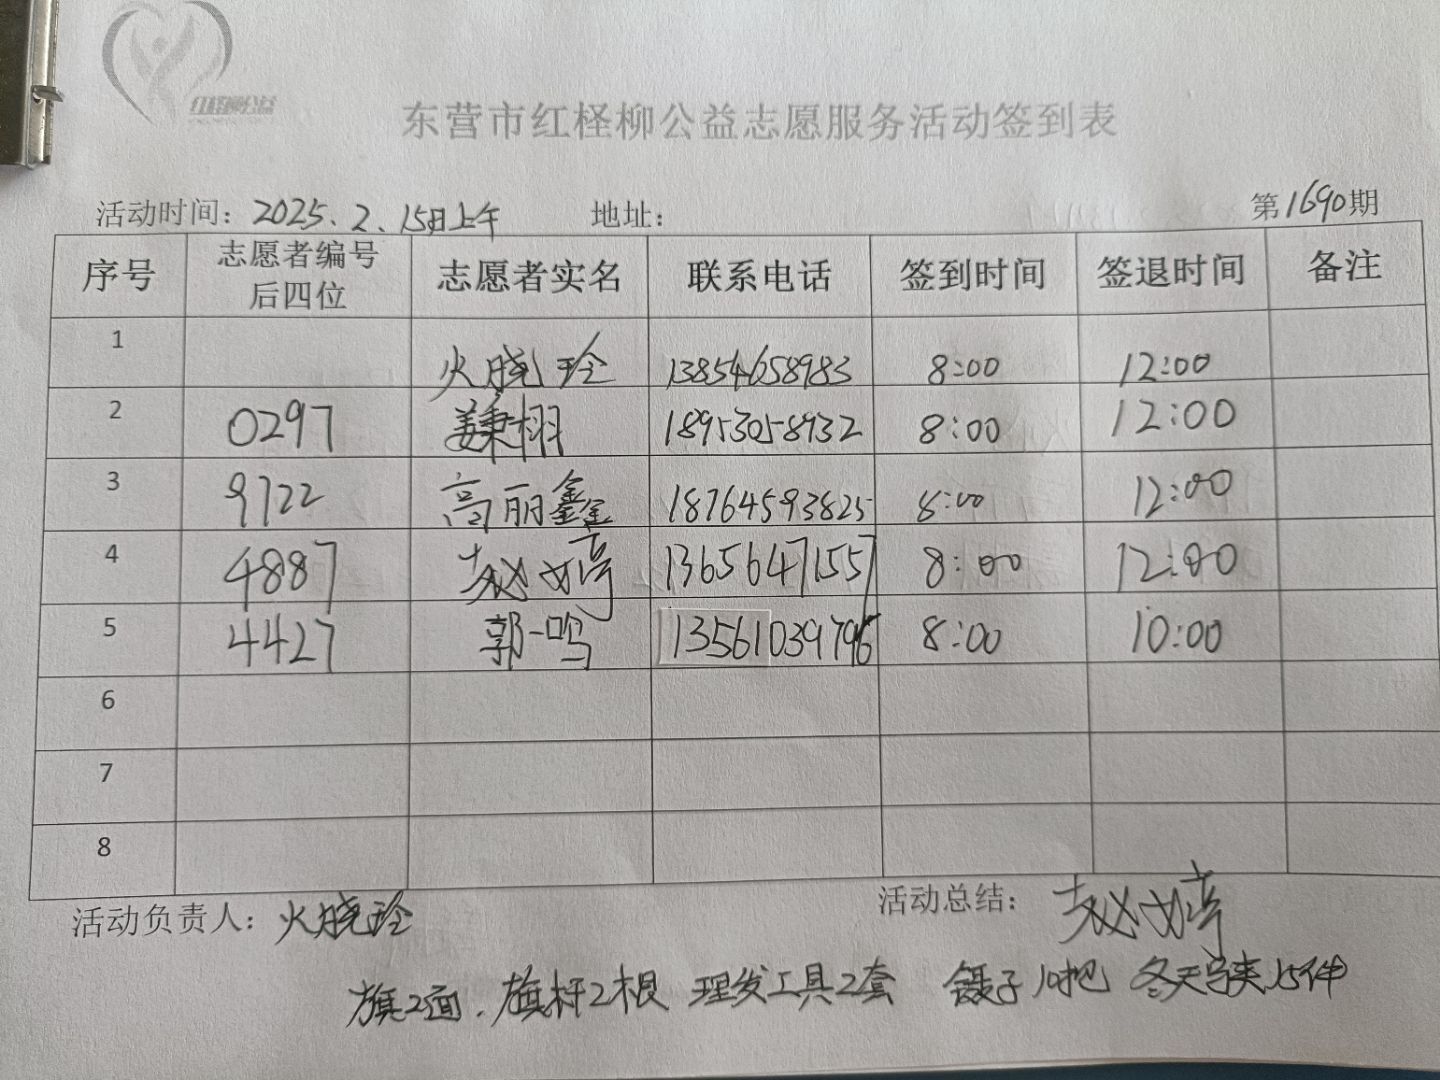 红柽柳公益
东营市红柽柳公益志愿服务活动签到表
活动时间：2025.2.15日上午 地址： 第1690期
序号 志愿者编号后四位 志愿者实名 联系电话 签到时间 签退时间 备注
1 火晓玲 13854658983 8:00 12:00
2 0297 姜秉栩 18953058932 8:00 12:00
3 9722 高丽鑫 18764593825 8:00 12:00
4 4887 赵婷 13656471557 8:00 12:00
5 4427 郭一鸣 13561039796 8:00 10:00
6
7
8
活动负责人：火晓玲 活动总结：赵婷
旗2面.旗杆2根 理发工具2套 镊子10把 冬天马夹15件